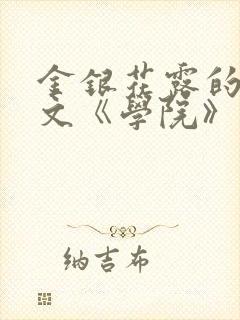 金銀花露的
文《學院》
納吉布